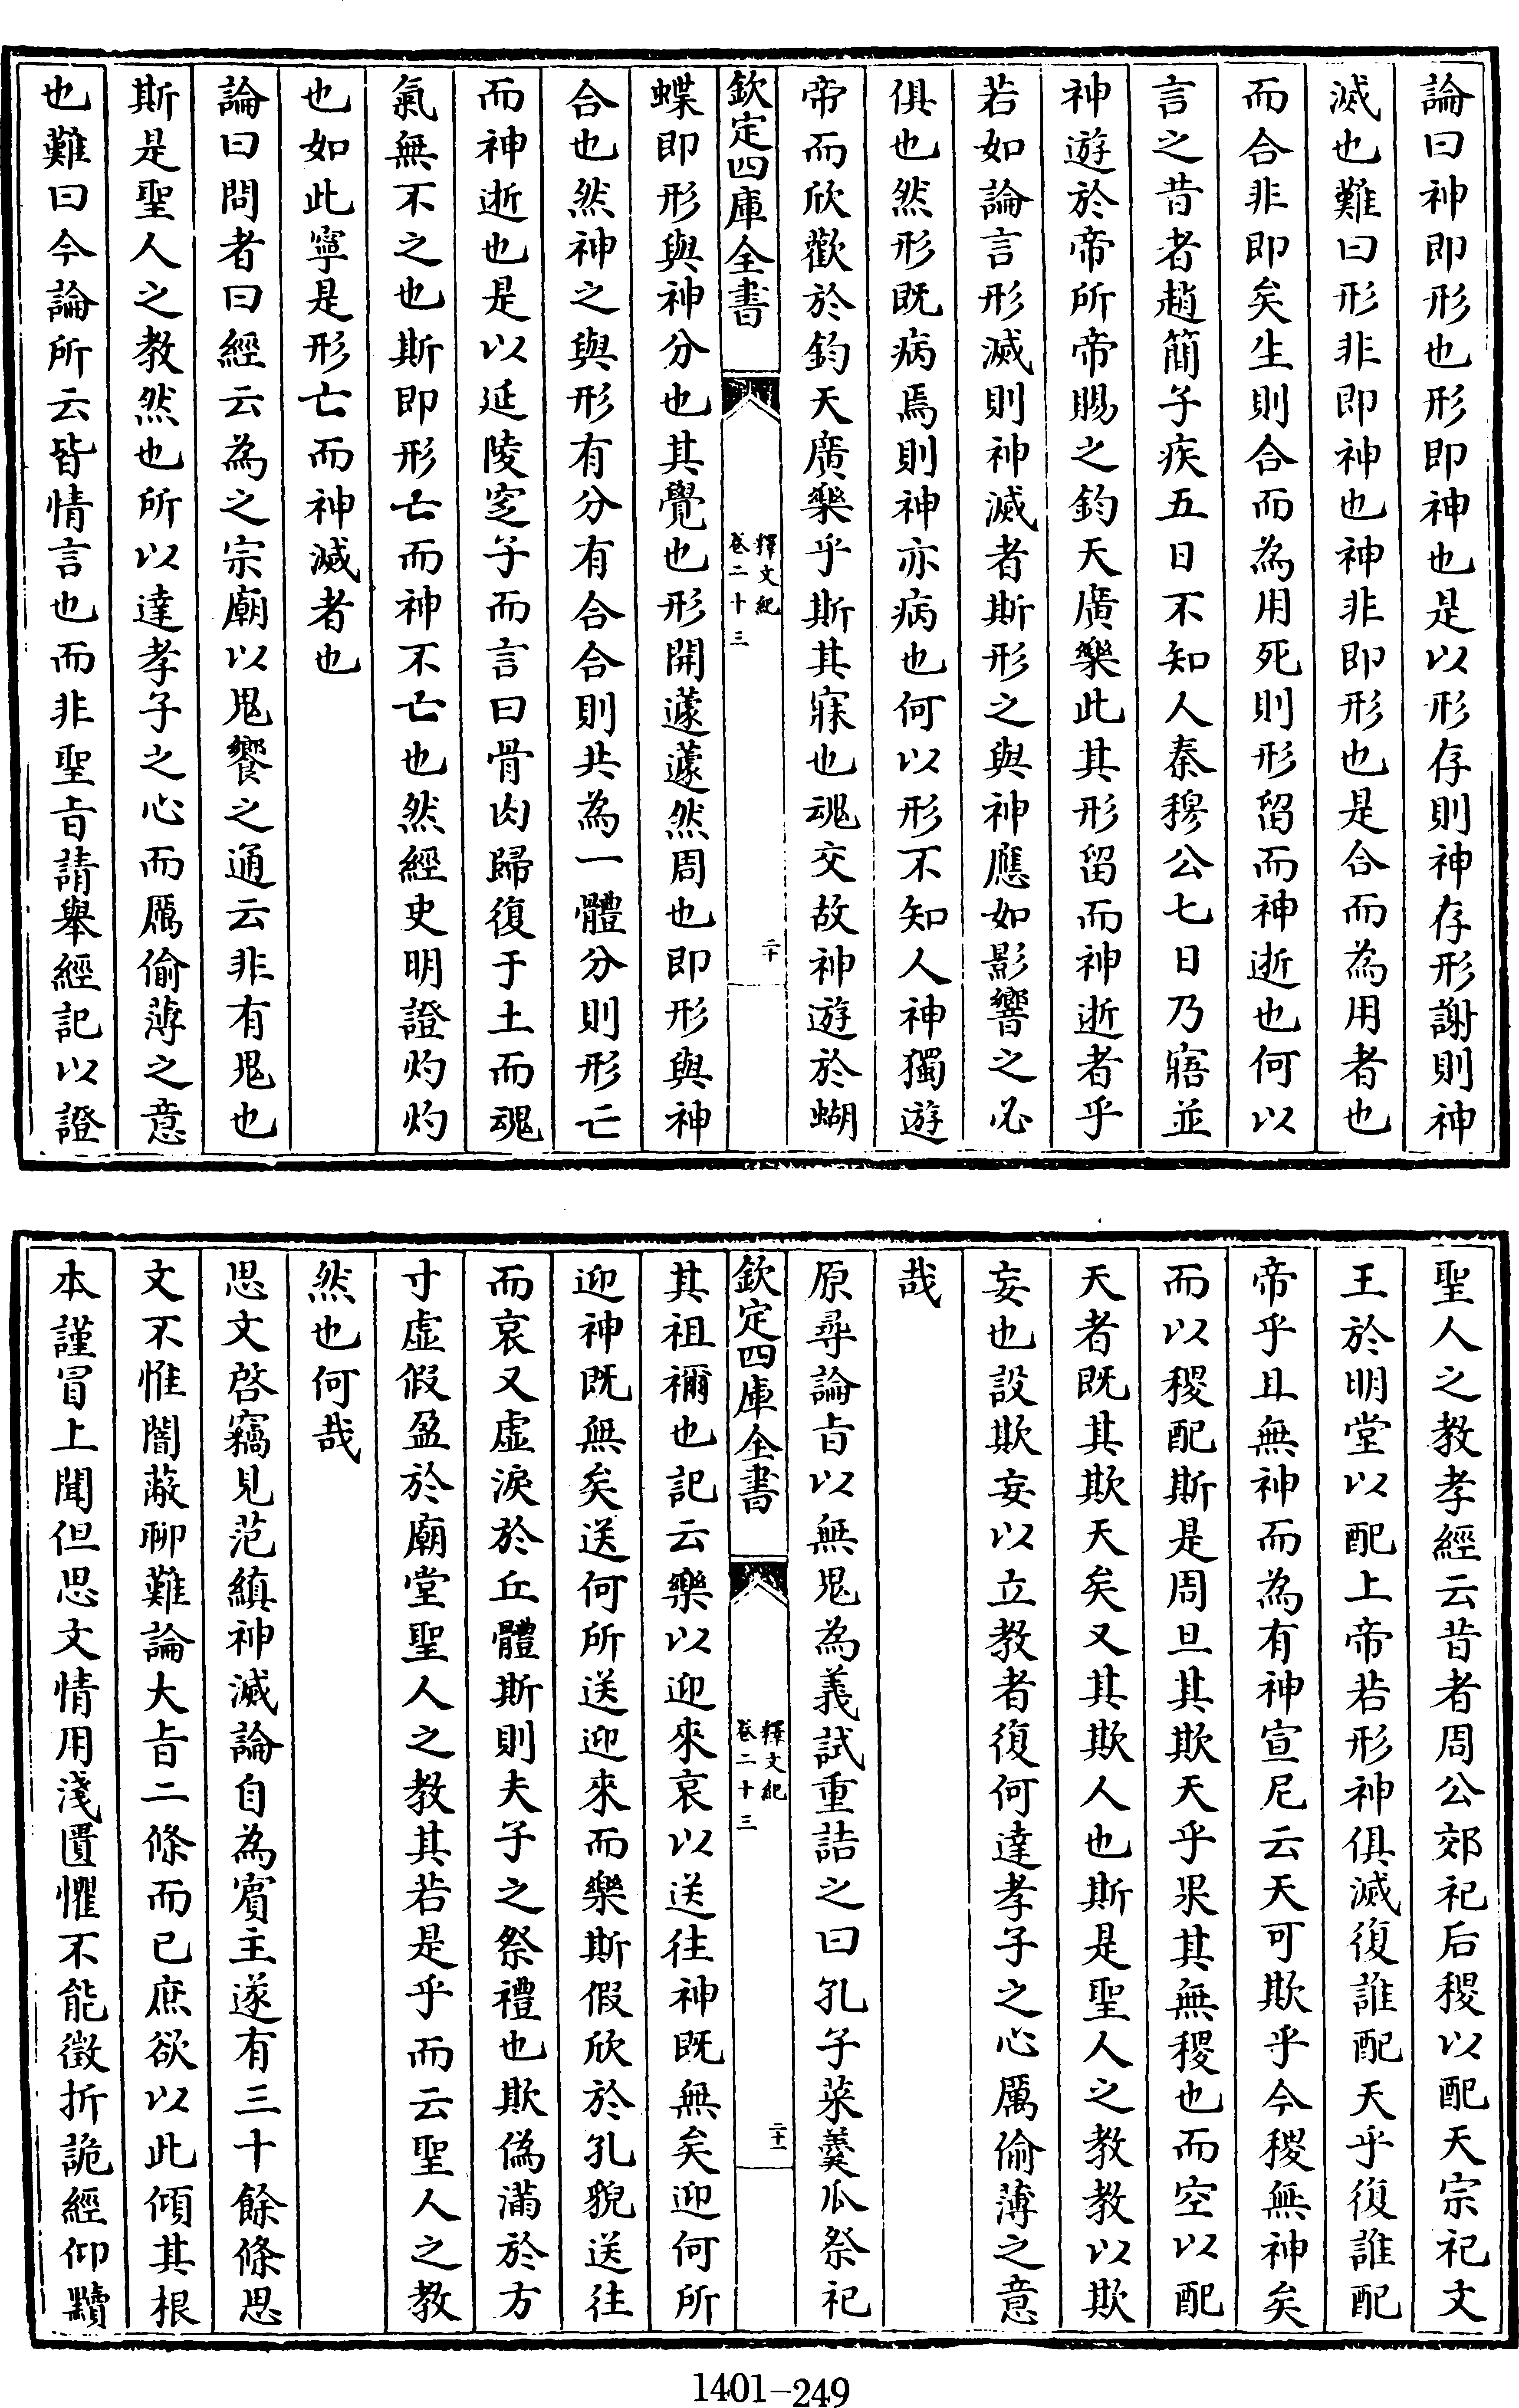 論曰神即形也形即神也是以形存則神存形謝則神
滅也難曰形非即神也神非即形也是合而為用者也
而合非即矣生則合而為用死則形留而神逝也何以
言之昔者趙簡子疾五日不知人秦穆公七日乃寤並
神遊於帝所帝賜之鈞天廣樂此其形留而神逝者乎
若如論言形滅則神滅者斯形之與神應如影響之必
俱也然形既病焉則神亦病也何以形不知人神獨遊
帝而欣歡於鈞天廣樂乎斯其寐也魂交故神遊於蝴
欽定四庫全書
釋文紀
卷二十三
二十
蝶即形與神分也其覺也形開蘧蘧然周也即形與神
合也然神之與形有分有合合則共為一體分則形亡
而神逝也是以延陵窆子而言曰骨肉歸復于土而魂
氣無不之也斯即形亡而神不亡也然經史明證灼灼
也如此寧是形亡而神滅者也
論曰問者曰經云為之宗廟以鬼饗之通云非有鬼也
斯是聖人之教然也所以達孝子之心而厲偷薄之意
也難曰今論所云皆情言也而非聖旨請舉經記以證
聖人之教孝經云昔者周公郊祀后稷以配天宗祀文
王於明堂以配上帝若形神俱滅復誰配天乎復誰配
帝乎且無神而為有神宣尼云天可欺乎今稷無神矣
而以稷配斯是周旦其欺天乎果其無稷也而空以配
天者既其欺天矣又其欺人也斯是聖人之教教以欺
妄也設欺妄以立教者復何達孝子之心厲偷薄之意
哉
原尋論旨以無鬼為義試重詰之曰孔子菜羹瓜祭祀
欽定四庫全書
釋文紀
卷二十三
二十一
其祖禰也記云樂以迎來哀以送往神既無矣迎何所
迎神既無矣送何所送迎來而樂斯假欣於孔貌送往
而哀又虛淚於丘體斯則夫子之祭禮也欺偽滿於方
寸虛假盈於廟堂聖人之教其若是乎而云聖人之教
然也何哉
思文啓竊見范縝神滅論自為賓主遂有三十餘條思
文不惟闇蔽聊難論大旨二條而已庶欲以此傾其根
本謹冒上聞但思文情用淺匱懼不能徵折詭經仰黷
1401-249